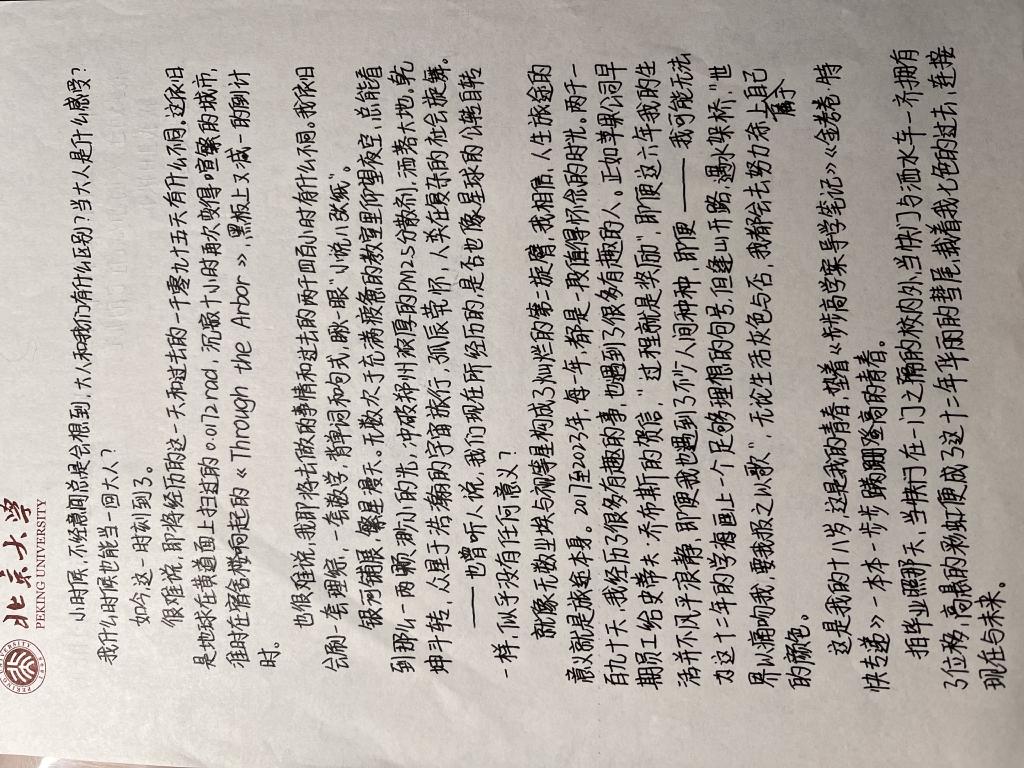 北京大学
PEKING UNIVERSITY
小时候,不经意间总是会想到,大人和我们有什么区别?当大人是什么感受?
我什么时候也能当一回大人?
如今,这一时刻到了。
很难说,即将经历的这一天和过去的一千零九十五天有什么不同。这依旧
是地球在黄道面上扫过的0.0172rad,沉寂十小时再次变得喧繁的城市,
准时在宿舍响起的《Through the Arbor》,黑板上又减一的倒计
时。
也很难说,我即将去做的事情和过去的两千四百小时有什么不同。我依旧
会刷一套理综,一套数学,背单词和句式,瞅一眼"小说八改纸"。
银河铺展,繁星漫天。无数次于充满疲惫的教室里仰望夜空,总能看
到那么一两颗渺小的光,冲破抑州浓厚的PM2.5分散剂,洒落大地。乾
坤斗转,众星于浩瀚的宇宙旅行,孤辰荒怀,人类在复杂的社会旋舞。
——也曾听人说,我们现在所经历的,是否也像星球的公转自转
一样,似乎没有任何意义?
就像无数尘埃与视等星构成了灿烂的第三旋臂,我相信,人生旅途的
意义就是旅途本身。2017至2023年,每一年,都是一段值得怀念的时光。两千一
百九十天,我经历了很多有趣的事,也遇到了很多有趣的人。正如苹果公司早
期员工给史蒂夫·乔布斯的贺信,"过程就是奖励",即便这六年我的生
活并不风平浪静,即便我也遇到了不少人间种种,即便——我可能无法
为这十二年的学海画上一个足够理想的句号,但逢山开路,遇水架桥,"世
界以痛吻我,要我报之以歌",无论生活灰色与否,我都会去努力添上自己
的颜色。
属于
这是我的十八岁,这是我的青春,垫着《步步高学案导学笔记》《金考卷·特
快专递》一本本一步步蹒跚登高的青春。
拍毕业照那天,当快门在一门之隔的校内外,当快门与洒水车一齐拥有
了位移,高悬的彩虹便成了这十二年华丽的彗尾,载着我七色的过去,连接
现在与未来。